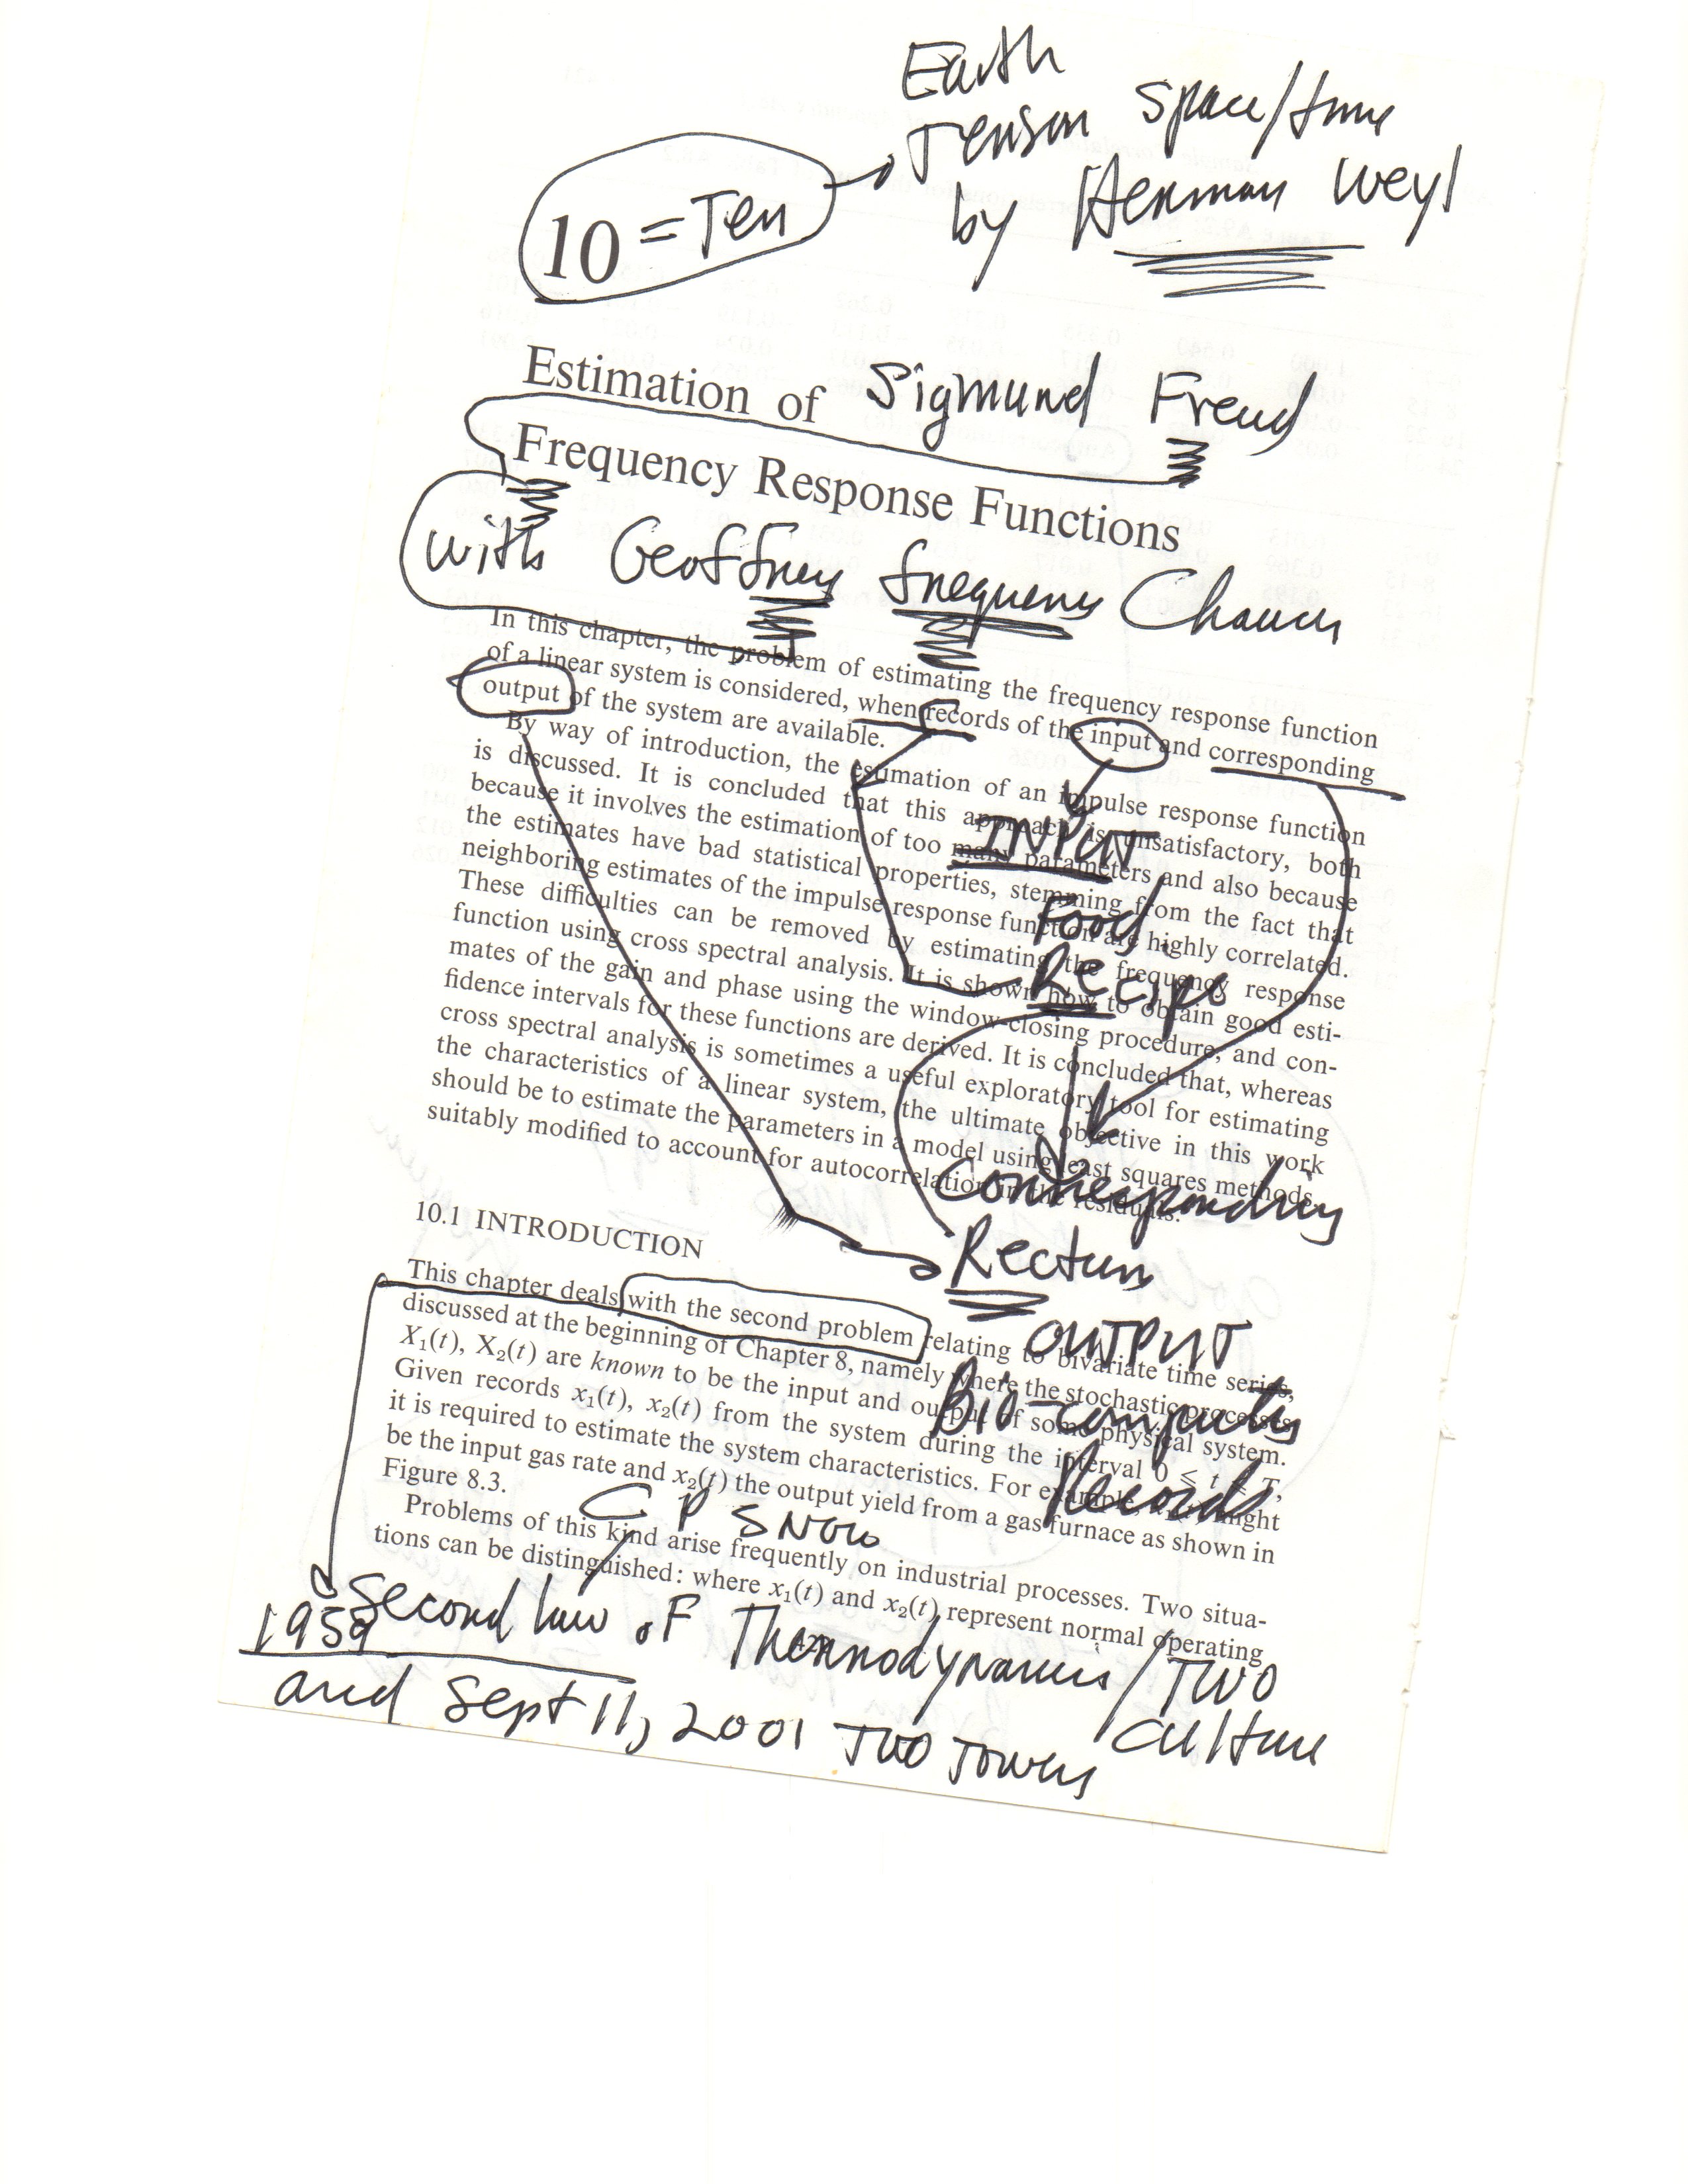 Earth
Tenson space/time
by Herman Weyl
10 = Ten
Estimation of Sigmund Freud
Frequency Response Functions
with Geoffrey frequency Chaucer
In this chapter, the problem of estimating the frequency response function
of a linear system is considered, when records of the input and corresponding
output of the system are available.
By way of introduction, the estimation of an impulse response function
is discussed. It is concluded that this approach is unsatisfactory, both
because it involves the estimation of too many parameters and also because
the estimates have bad statistical properties, stemming from the fact that
neighboring estimates of the impulse response function are highly correlated.
These difficulties can be removed by estimating the frequency response
function using cross spectral analysis. It is shown how to obtain good esti-
mates of the gain and phase using the window-closing procedure, and con-
fidence intervals for these functions are derived. It is concluded that, whereas
cross spectral analysis is sometimes a useful exploratory tool for estimating
the characteristics of a linear system, the ultimate objective in this work
should be to estimate the parameters in a model using least squares methods,
suitably modified to account for autocorrelation in the residuals.
INPUT
Food
Recipe
corresponding
Rectum
OUTPUT
Bio-computer
Records
10.1 INTRODUCTION
This chapter deals with the second problem relating to bivariate time series,
discussed at the beginning of Chapter 8, namely where the stochastic processes
X₁(t), X₂(t) are known to be the input and output of some physical system.
Given records x₁(t), x₂(t) from the system during the interval 0 ≤ t ≤ T,
it is required to estimate the system characteristics. For example, x₁(t) might
be the input gas rate and x₂(t) the output yield from a gas furnace as shown in
Figure 8.3.
C P SNOW
Problems of this kind arise frequently on industrial processes. Two situa-
tions can be distinguished: where x₁(t) and x₂(t) represent normal operating
1959 second law of Thermodynamics / Two
culture
and Sept 11, 2001 Two Towers